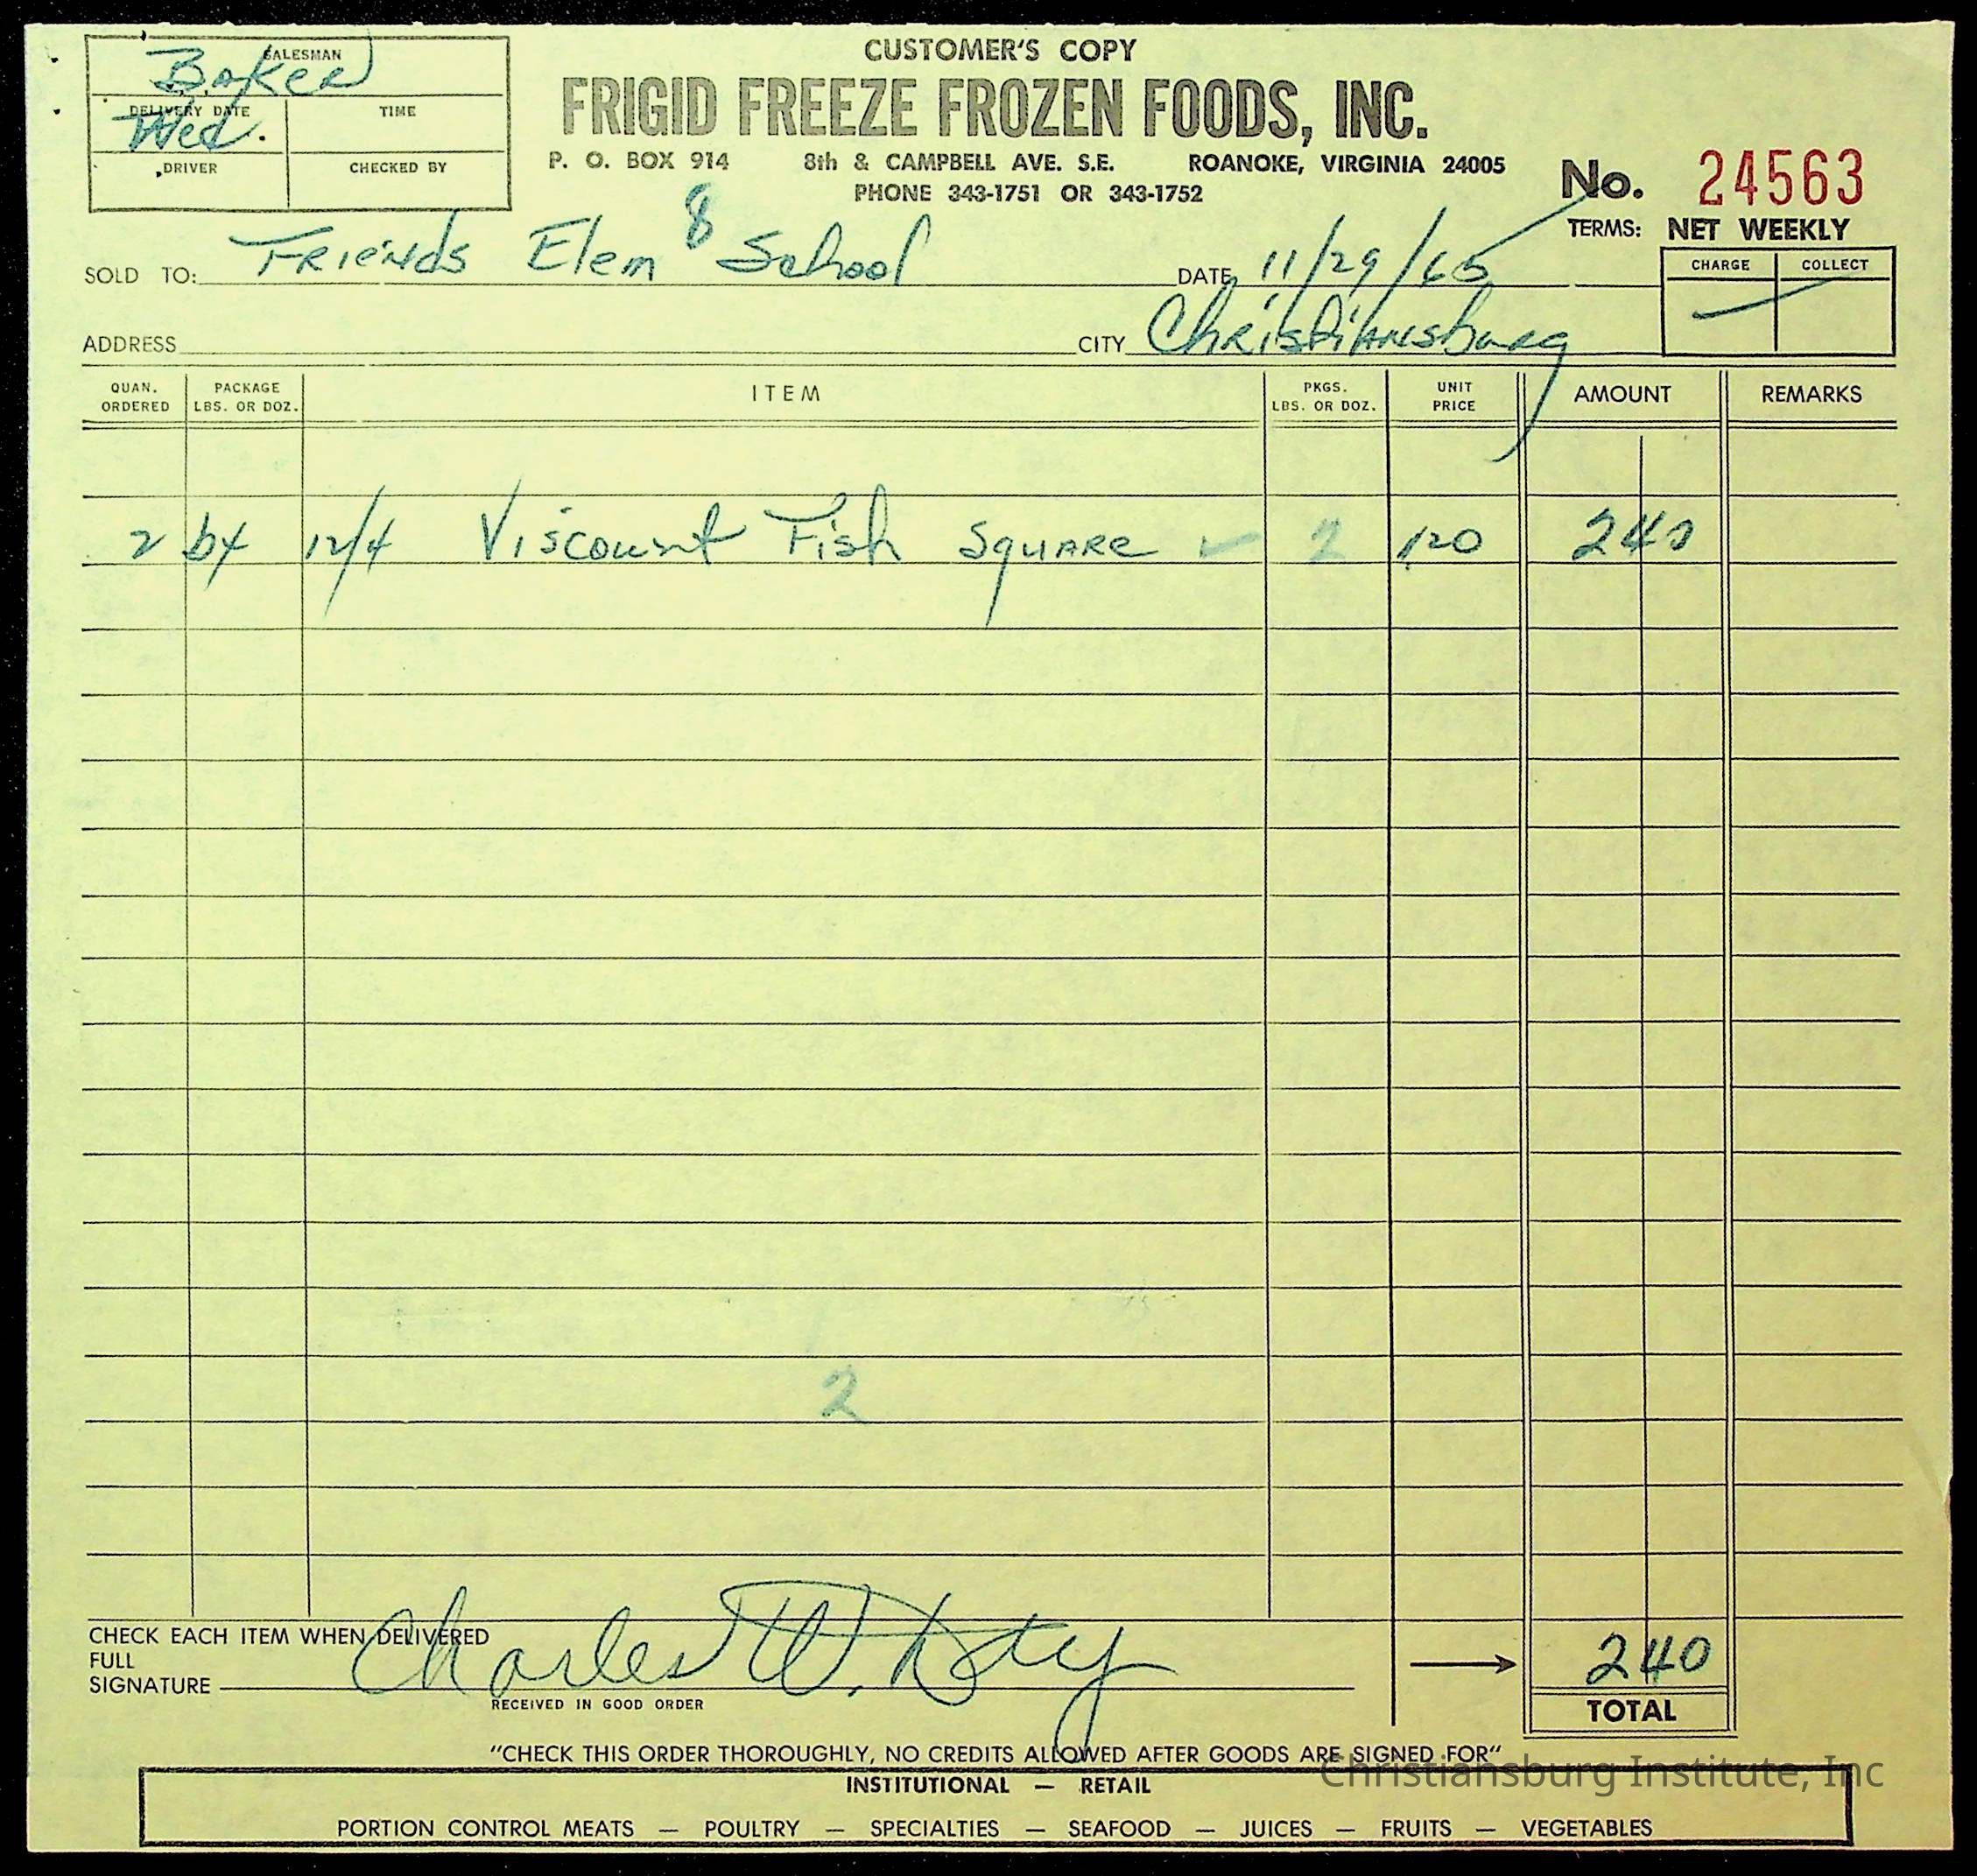 CUSTOMER'S COPY
FRIGID FREEZE FROZEN FOODS, INC.
P. O. BOX 914 8th & CAMPBELL AVE. S.E. ROANOKE, VIRGINIA 24005
PHONE 343-1751 OR 343-1752
SALESMAN
Baker
DELIVERY DATE TIME
Wed.
DRIVER CHECKED BY
No. 24563
TERMS: NET WEEKLY
CHARGE COLLECT
8
SOLD TO: Friends Elem School DATE 11/29/65
ADDRESS CITY Christiansburg
QUAN. ORDERED PACKAGE LBS. OR DOZ. ITEM PKGS. LBS. OR DOZ. UNIT PRICE AMOUNT REMARKS
2 bx 12/4 Viscount Fish Square ✓ 2 120 240
2
CHECK EACH ITEM WHEN DELIVERED
FULL
SIGNATURE Charles W.
RECEIVED IN GOOD ORDER
240
TOTAL
"CHECK THIS ORDER THOROUGHLY, NO CREDITS ALLOWED AFTER GOODS ARE SIGNED FOR"
Christiansburg Institute, Inc
INSTITUTIONAL — RETAIL
PORTION CONTROL MEATS — POULTRY — SPECIALTIES — SEAFOOD — JUICES — FRUITS — VEGETABLES